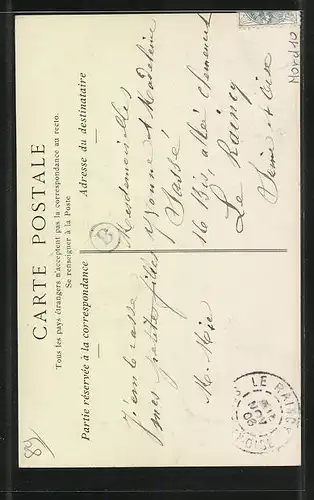 CARTE POSTALE
Tous les pays étrangers n'acceptent pas la correspondance au recto.
Se renseigner à la Poste
Partie réservée à la correspondance
Adresse du destinataire
J'embrasse
mes petites filles
M. Mie
Mesdemoiselles
Yvonne et Madeleine
16 Bis, allée Clemencet
Le Raincy
Seine et Oise
LE RAINCY
Mord10